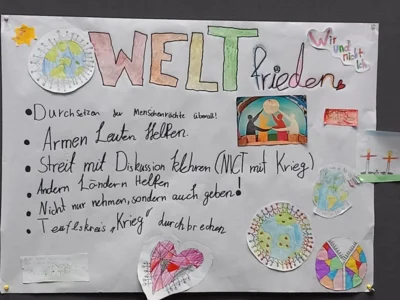 WELT
frieden
Wir
und nicht
Ich
Durchsetzen der Menschenrechte überall!
Armen Leuten Helfen.
Streit mit Diskussion klähren (NICT mit Krieg)
Andern Ländern Helfen
Nicht nur nehmen, sondern auch geben!
Teuflskreis „Krieg" durchbrechen